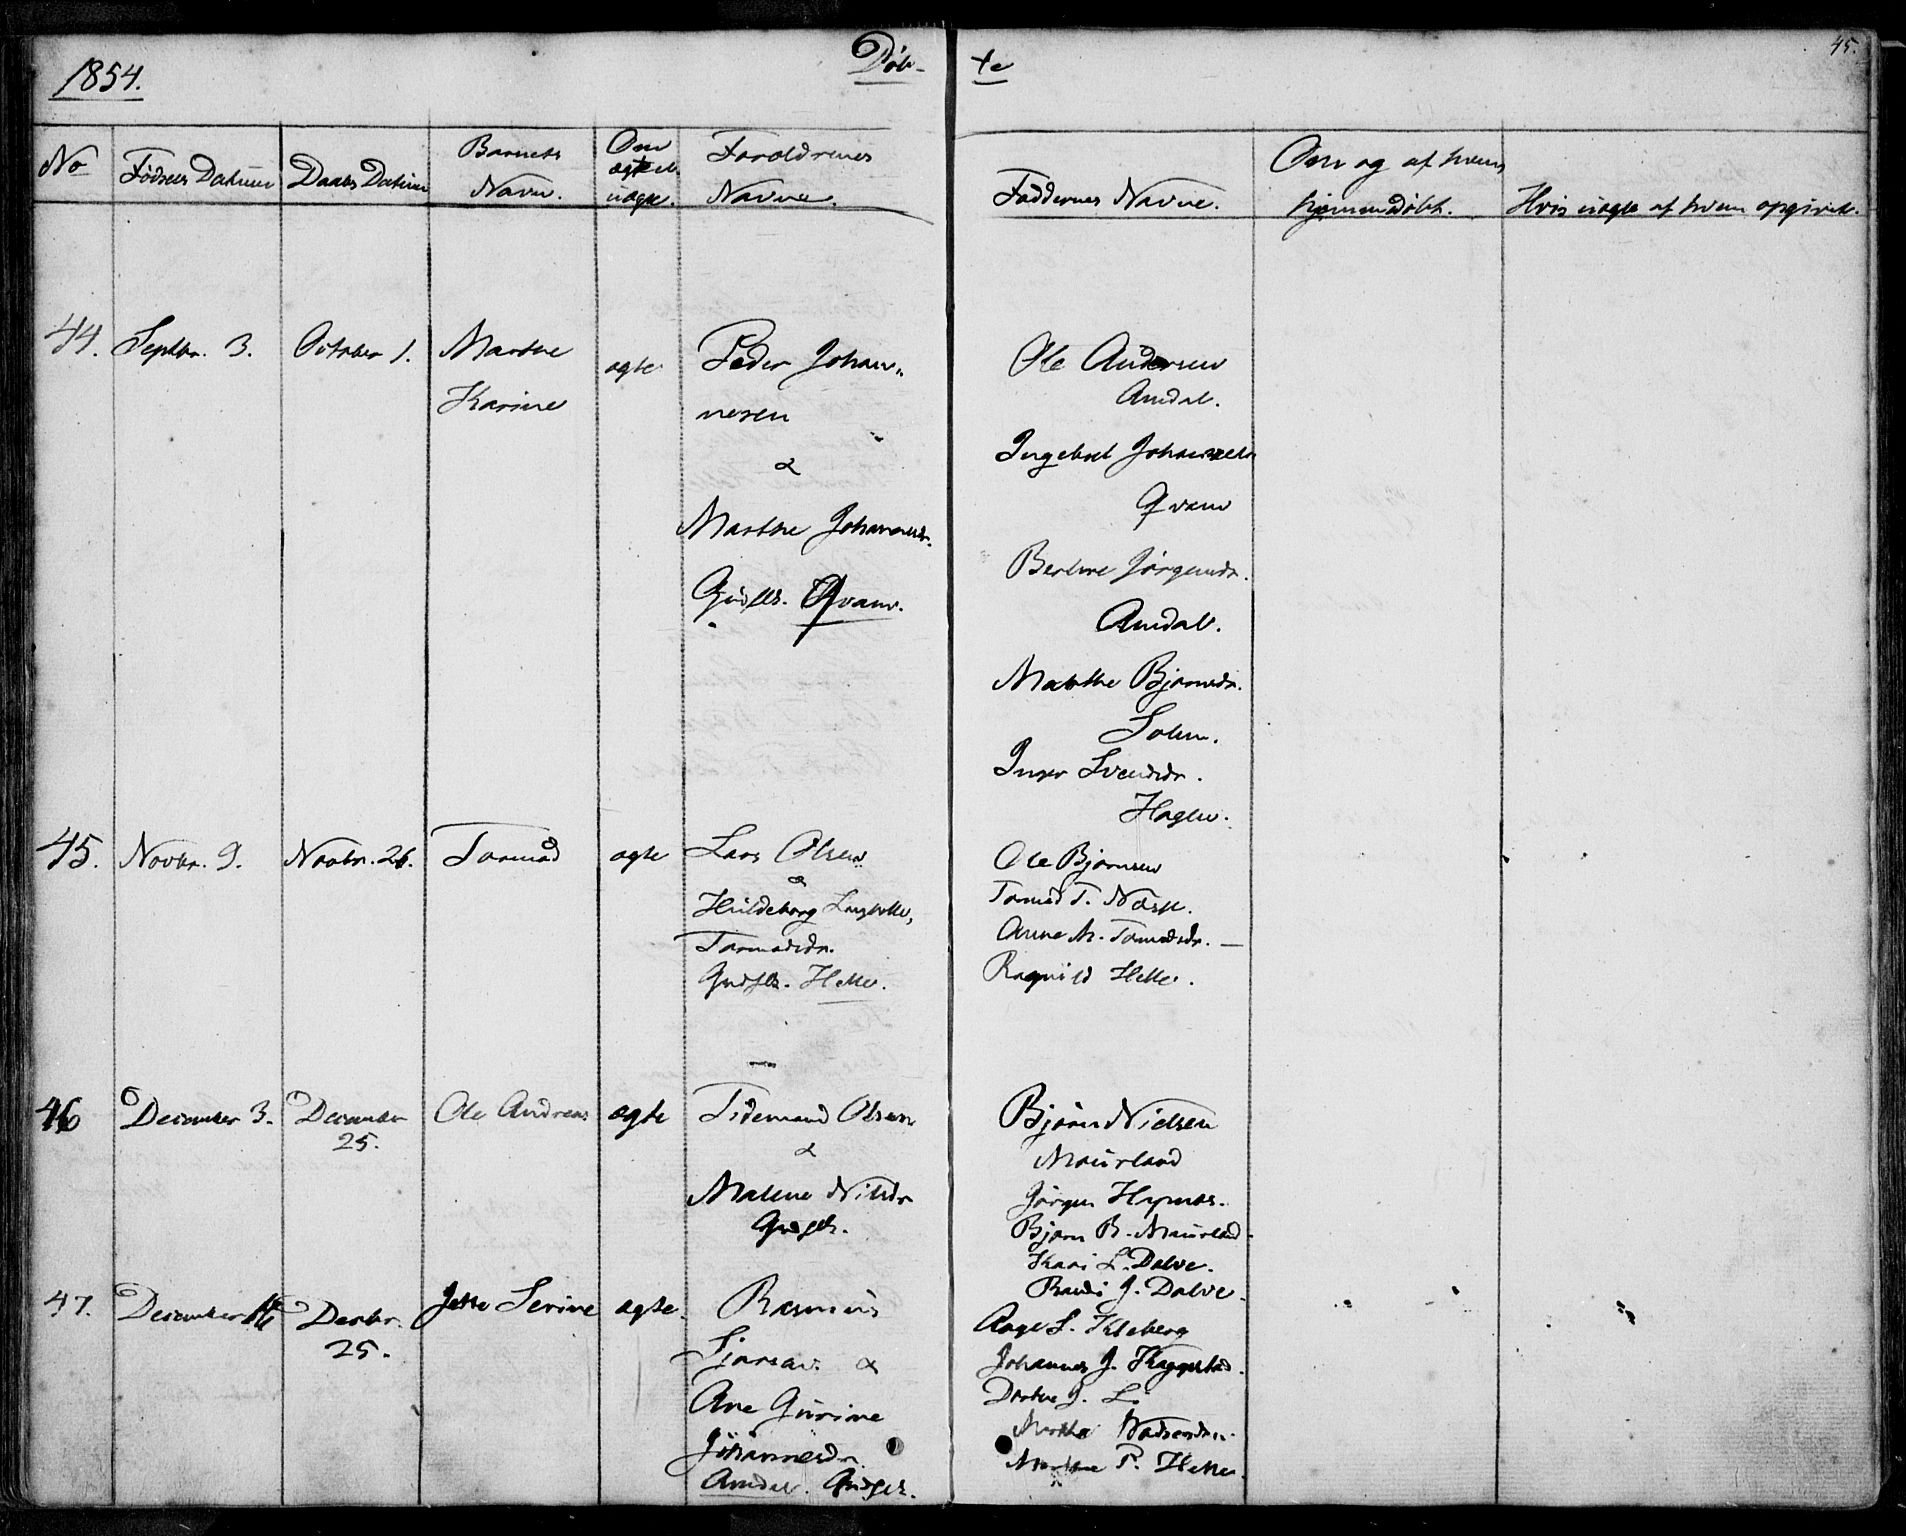 1854.
Døb-
te
45.
No
Fødsels Datum
Daabs Datum
Barnets
Navn.
Om
ægte el.
uægte.
Forældrenes
Navne.
Faddernes Navne.
Om og af hvem
hjemmedøbt.
Hvis uægte af hvem opgivet.
44.
Septbr. 3.
October 1.
Marthe
Karine
ægte
Peder Johan-
nesen
&
Marthe Johannesdr.
Gudsfls. Qvam.
Ole Andersen
Amdal.
Ingebret Johannes
Qvam
Berthe Jørgensdr.
Amdal.
Marthe Bjørnsdr.
Solem.
Inger Svendsdr.
Hagen.
45.
Novbr. 9.
Novbr. 26.
Tormod
ægte
Lars Olsen
&
Hildeborg
Tormodsdr.
Gudsfls. Helle.
Ole Bjørnsen
Tormod T. Næse.
Anne M. Tormodsdr. —
Ragnild Helle.
46
December 3.
December
25.
Ole Andreas
ægte
Tidemand Olsen
&
Malene Nilsdr
Gudsfls.
Bjørn Nielsen
Maurland
Jørgen
Bjørn B. Maurland.
Kari L. Dalve.
Randi J. Dalve.
47.
December 16
Decbr.
25.
Jette Serine
ægte.
Rasmus
&
Ane Gurine
Johannesdr.
Amdal. Gudsfls.
Aage S. Kleberg
Johannes J.
Dorthe J. Li
Marthe
Marthe P. Helle.